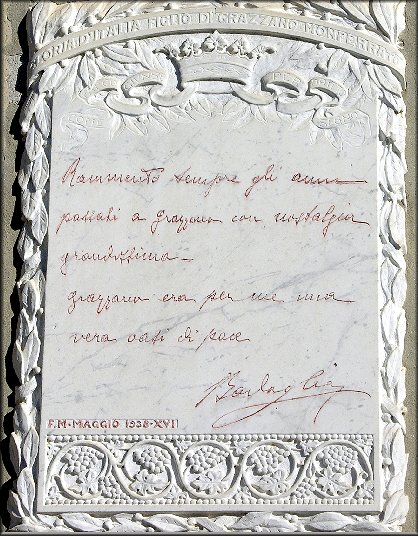 ORIA D'ITALIA FIGLIO DI GRAZZANO MONFERRA
Rammento sempre gli anni
passati a Grazzano con nostalgia
grandissima -
Grazzano era per me una
vera oasi di pace
Badoglio
F.M. MAGGIO 1938·XVII